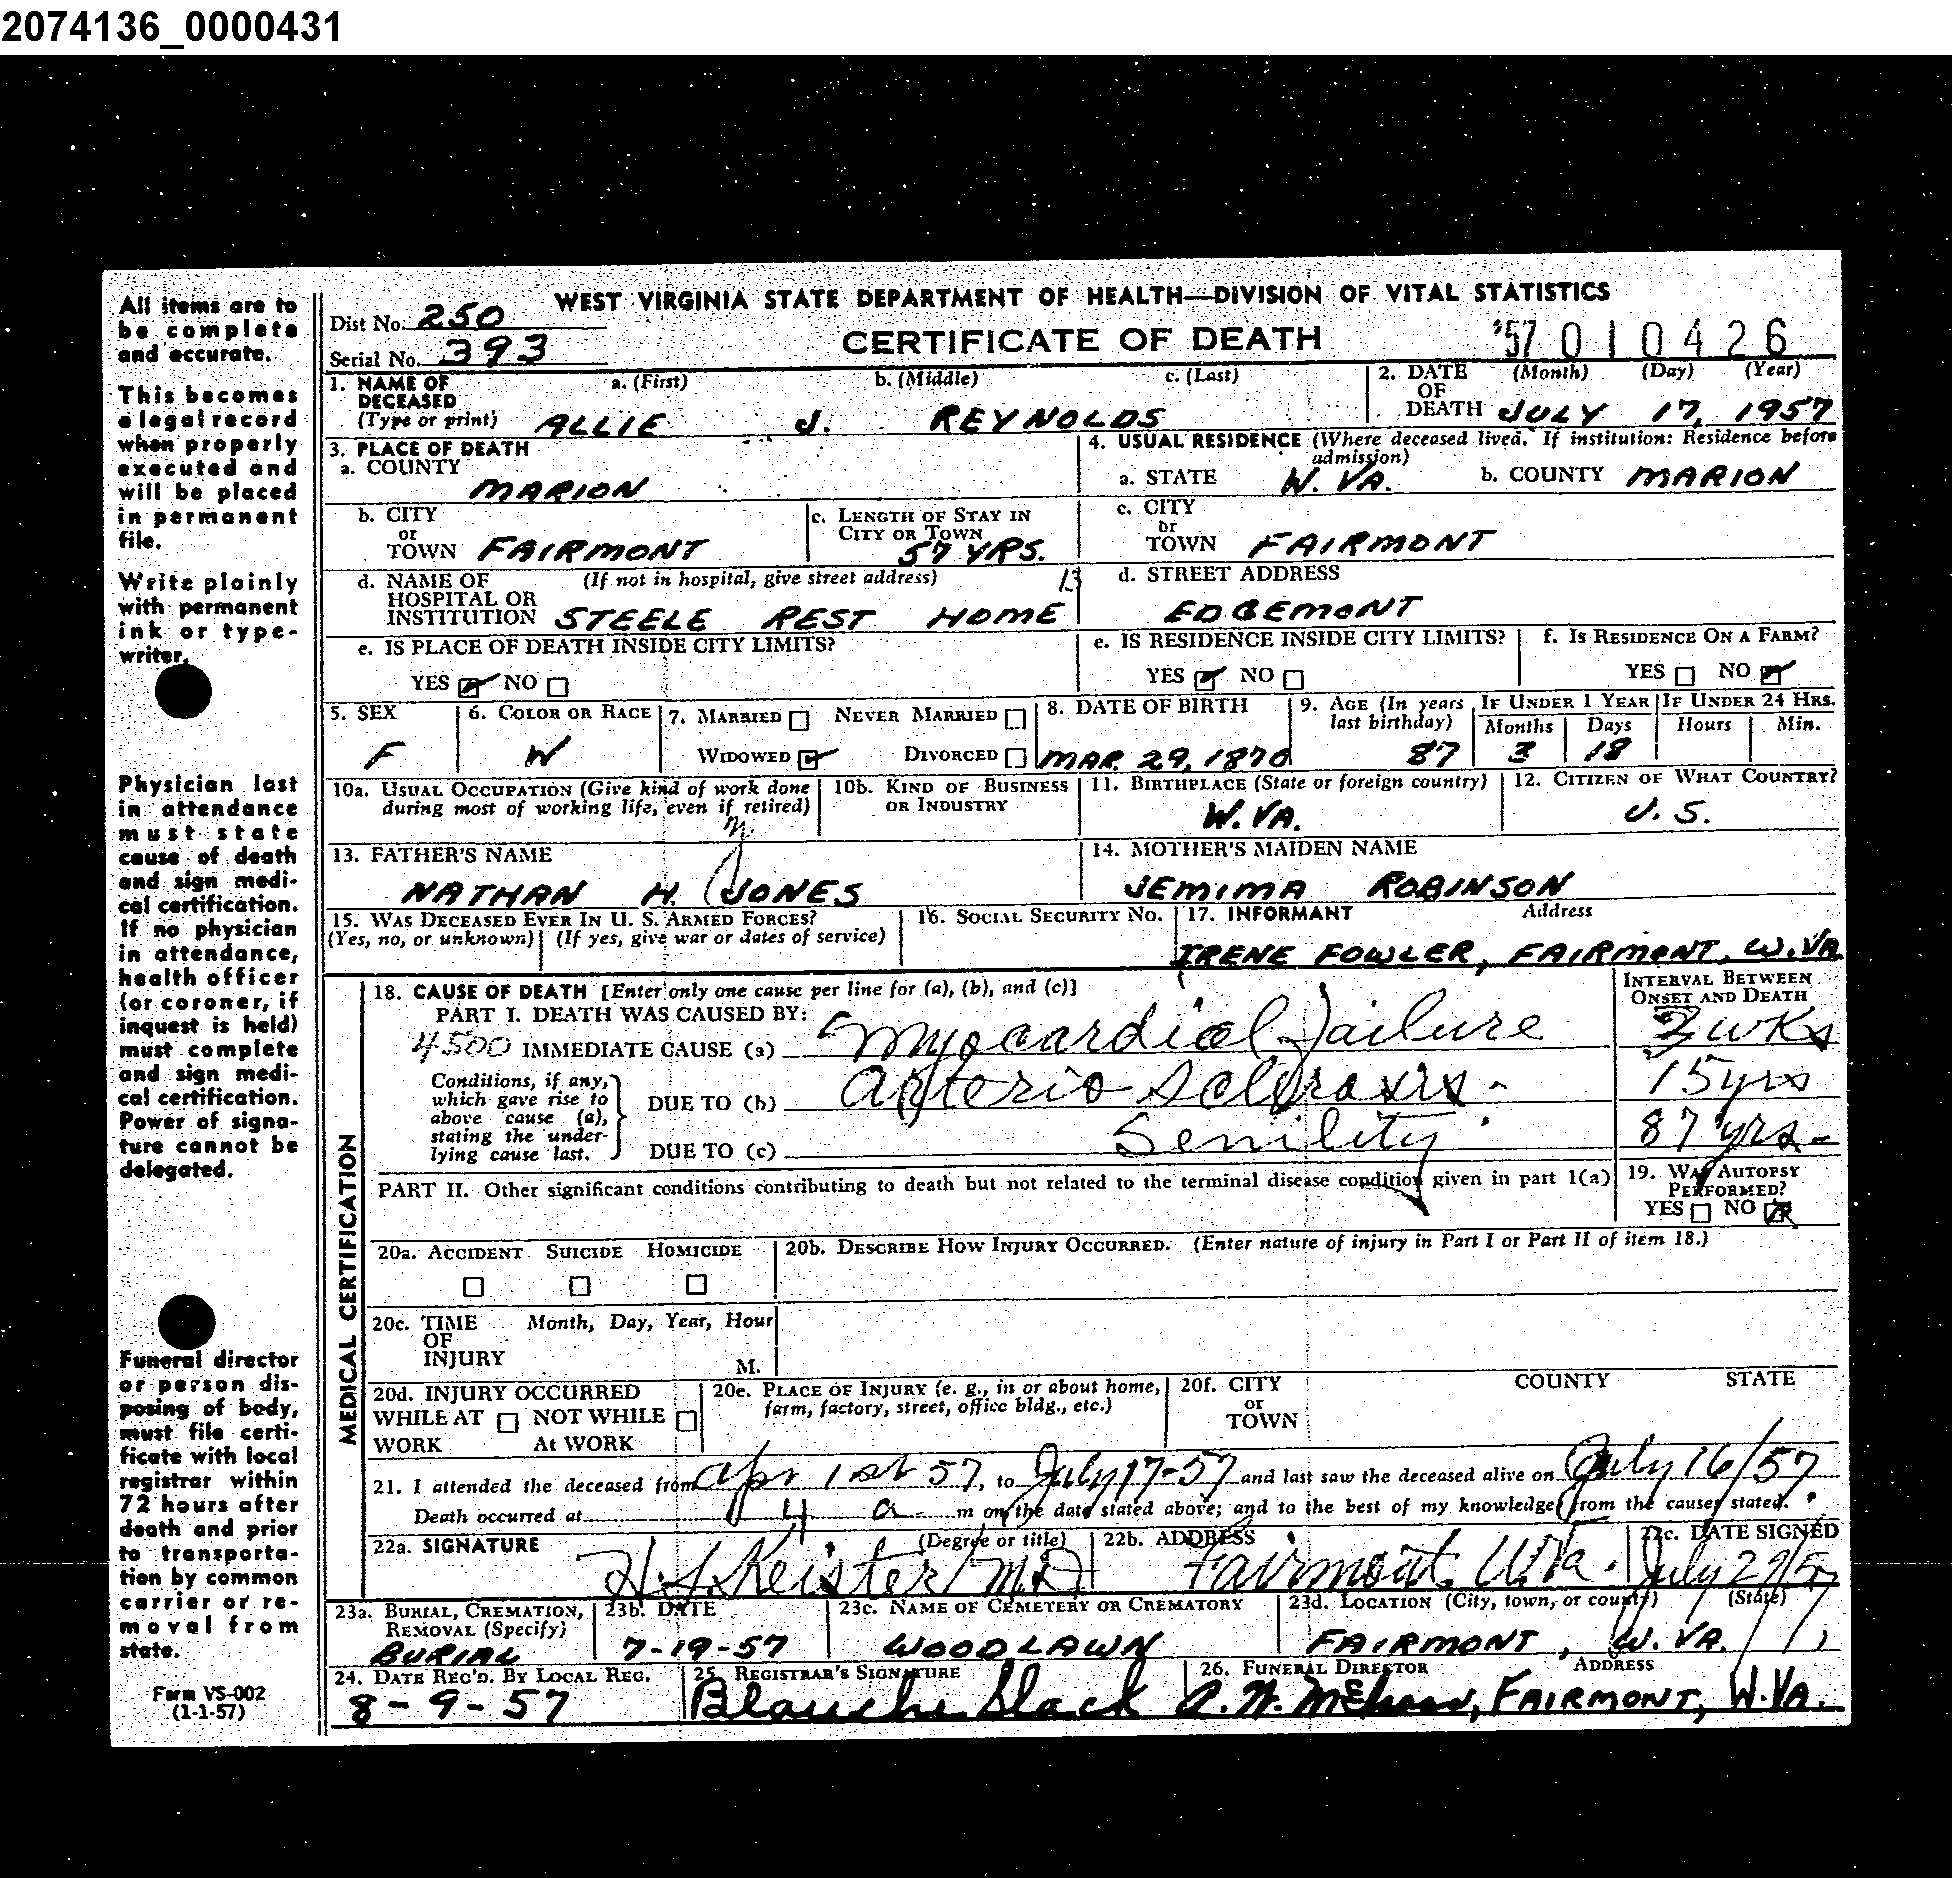 2074136_0000431
All items are to
be complete
and accurate.
This becomes
a legal record
when properly
executed and
will be placed
in permanent
file.
Write plainly
with permanent
ink or type-
writer.
Physician last
in attendance
must state
cause of death
and sign medi-
cal certification.
If no physician
in attendance,
health officer
(or coroner, if
inquest is held)
must complete
and sign medi-
cal certification.
Power of signa-
ture cannot be
delegated.
Funeral director
or person dis-
posing of body,
must file certi-
ficate with local
registrar within
72 hours after
death and prior
to transporta-
tion by common
carrier or re-
moval from
state.
Form VS-002
(1-1-57)
WEST VIRGINIA STATE DEPARTMENT OF HEALTH—DIVISION OF VITAL STATISTICS
Dist No. 250
Serial No. 393
CERTIFICATE OF DEATH
'57 010426
1. NAME OF DECEASED (Type or print) a. (First) b. (Middle) c. (Last)
ALLIE J. REYNOLDS
2. DATE OF DEATH (Month) (Day) (Year)
JULY 17, 1957
3. PLACE OF DEATH
a. COUNTY
MARION
4. USUAL RESIDENCE (Where deceased lived. If institution: Residence before admission)
a. STATE W. VA. b. COUNTY MARION
b. CITY or TOWN FAIRMONT
c. LENGTH OF STAY IN CITY OR TOWN
57 YRS.
c. CITY or TOWN FAIRMONT
d. NAME OF HOSPITAL OR INSTITUTION (If not in hospital, give street address)
STEELE REST HOME
13
d. STREET ADDRESS
EDGEMONT
e. IS PLACE OF DEATH INSIDE CITY LIMITS?
YES NO
e. IS RESIDENCE INSIDE CITY LIMITS?
YES NO
f. IS RESIDENCE ON A FARM?
YES NO
5. SEX
F
6. COLOR OR RACE
W
7. MARRIED NEVER MARRIED
WIDOWED DIVORCED
8. DATE OF BIRTH
MAR. 29, 1870
9. AGE (In years last birthday)
87
IF UNDER 1 YEAR
Months Days
3 18
IF UNDER 24 HRS.
Hours Min.
10a. USUAL OCCUPATION (Give kind of work done during most of working life, even if retired)
10b. KIND OF BUSINESS OR INDUSTRY
11. BIRTHPLACE (State or foreign country)
W. VA.
12. CITIZEN OF WHAT COUNTRY?
U. S.
13. FATHER'S NAME
NATHAN H. JONES
14. MOTHER'S MAIDEN NAME
JEMIMA ROBINSON
15. WAS DECEASED EVER IN U. S. ARMED FORCES?
(Yes, no, or unknown) (If yes, give war or dates of service)
16. SOCIAL SECURITY NO.
17. INFORMANT Address
IRENE FOWLER, FAIRMONT, W. VA.
MEDICAL CERTIFICATION
18. CAUSE OF DEATH [Enter only one cause per line for (a), (b), and (c)]
PART I. DEATH WAS CAUSED BY:
4500 IMMEDIATE CAUSE (a) Myocardial failure
INTERVAL BETWEEN ONSET AND DEATH
wks
Conditions, if any, which gave rise to above cause (a), stating the under- lying cause last.
DUE TO (b) Arterio sclerosis
15 yrs
DUE TO (c) Senility
87 yrs
PART II. Other significant conditions contributing to death but not related to the terminal disease condition given in part 1(a)
19. WAS AUTOPSY PERFORMED?
YES NO
20a. ACCIDENT SUICIDE HOMICIDE
20b. DESCRIBE HOW INJURY OCCURRED. (Enter nature of injury in Part I or Part II of item 18.)
20c. TIME OF INJURY Month, Day, Year, Hour
M.
20d. INJURY OCCURRED
WHILE AT WORK NOT WHILE At WORK
20e. PLACE OF INJURY (e. g., in or about home, farm, factory, street, office bldg., etc.)
20f. CITY or TOWN COUNTY STATE
21. I attended the deceased from Apr 1st 57, to July 17-57 and last saw the deceased alive on July 16/57
Death occurred at 4 a m on the date stated above; and to the best of my knowledge, from the causes stated.
22a. SIGNATURE (Degree or title)
H. J. Keister M.D.
22b. ADDRESS
Fairmont W. Va.
22c. DATE SIGNED
July
23a. BURIAL, CREMATION, REMOVAL (Specify)
BURIAL
23b. DATE
7-19-57
23c. NAME OF CEMETERY OR CREMATORY
WOODLAWN
23d. LOCATION (City, town, or county) (State)
FAIRMONT, W. VA.
24. DATE REC'D. BY LOCAL REG.
8-9-57
25. REGISTRAR'S SIGNATURE
Blanche Slack
26. FUNERAL DIRECTOR ADDRESS
FAIRMONT, W. VA.